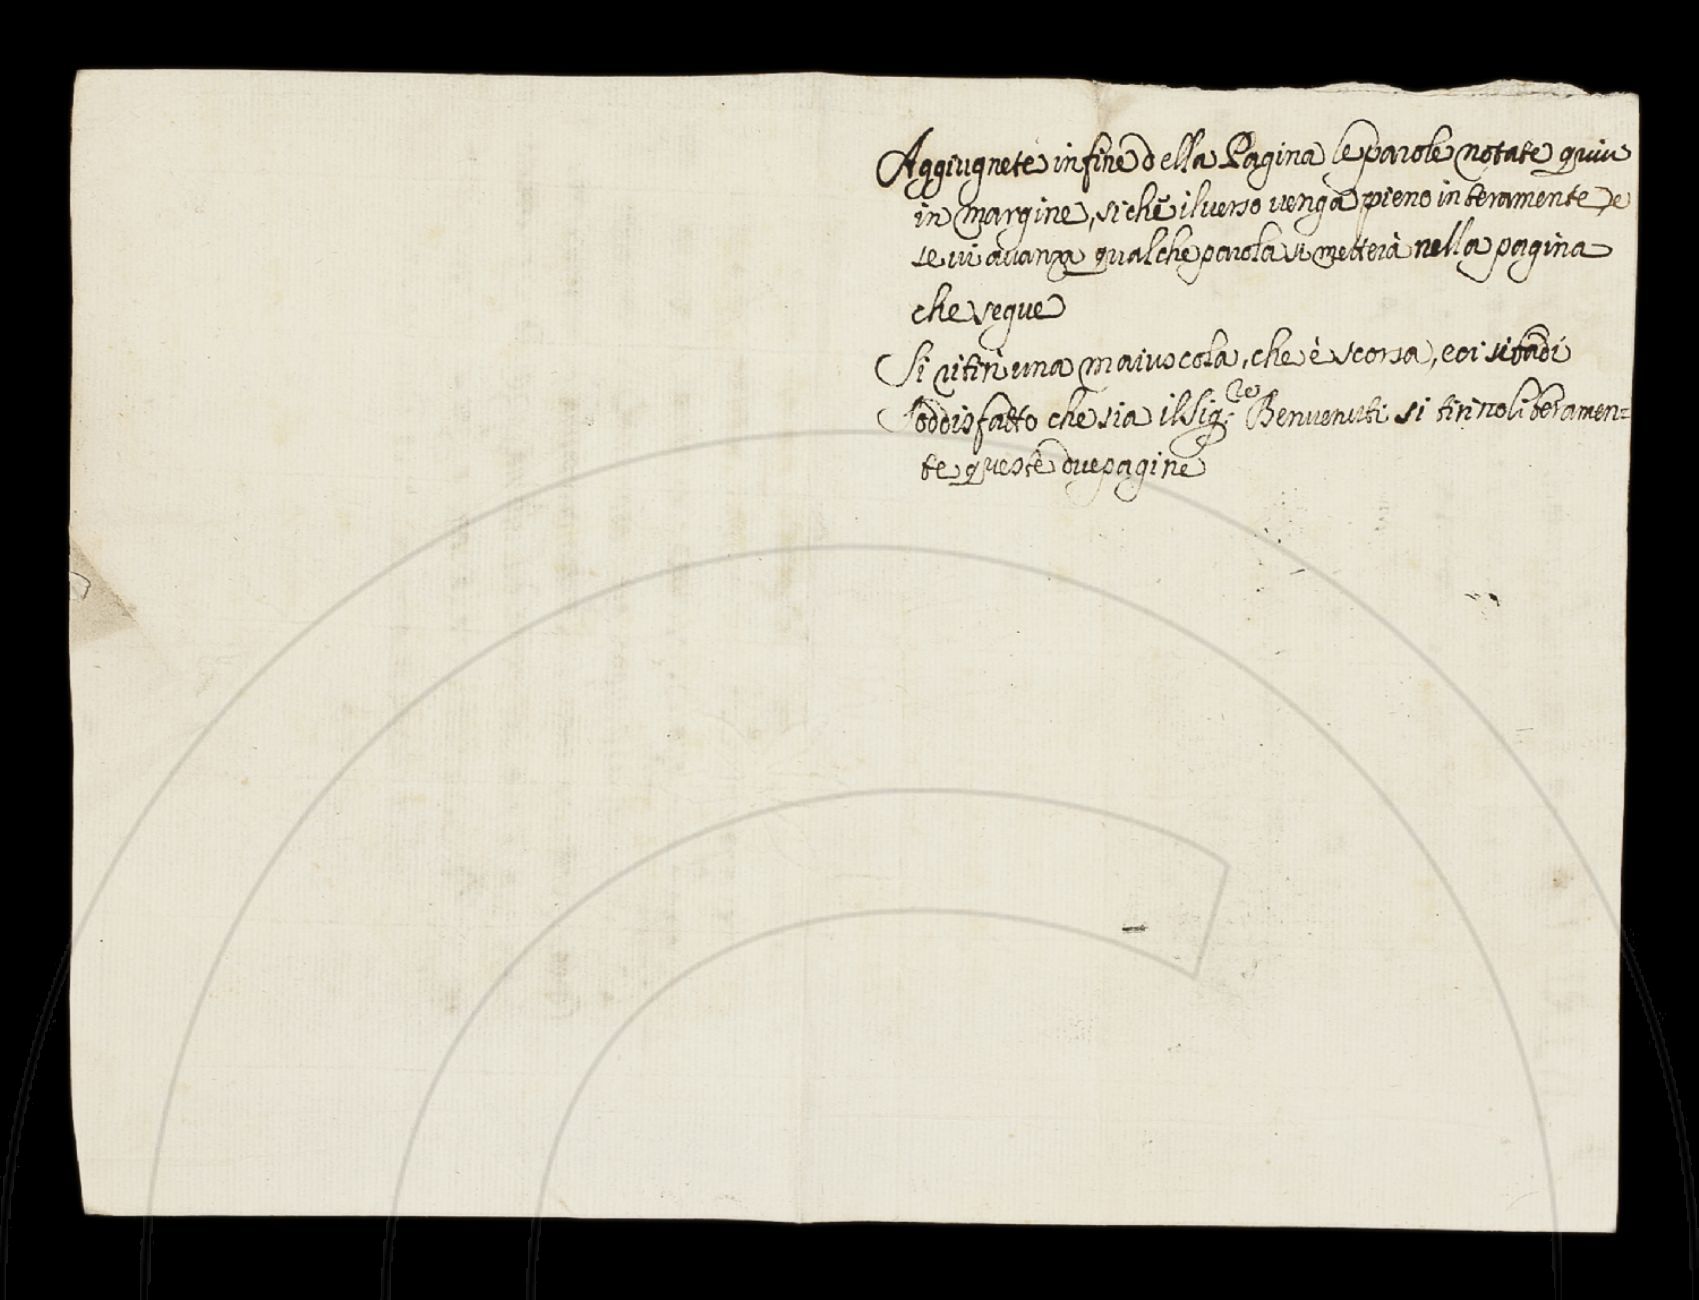 Aggiugnete in fine della Pagina le parole notate quivi
in margine, si che il verso venga pieno interamente, e
se vi avanza qualche parola si metterà nella pagina
che segue
Si ritiri una maiuscola, che è scorsa, e
Soddisfatto che sia il Sig.re Benvenuti si tirino liberamen=
te queste due pagine